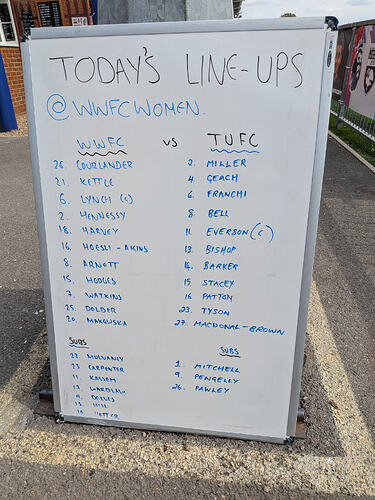 TODAY'S LINE-UPS
@WWFCWOMEN.
WWFC vs TUFC
26. COURLANDER
21. KETTLE
6. LYNCH (C)
2. HENNESSY
18. HARVEY
16. HOESLI-ATKINS
8. ARNOTT
15. HODGES
7. WATKINS
25. DOLDER
20. MAKOWSKA
SUBS
22. MULVANEY
23 CARPENTER
11 KASSEM
13 WARDLAW
9 DELVES
12 HILL
2. MILLER
4. GEACH
6. FRANCHI
8 BELL
11. EVERSON (C)
13. BISHOP
14. BARKER
15. STACEY
16 PATTON
23. TYSON
27. MACDONAL-BROWN
SUBS
1. MITCHELL
9. PENGELLY
26. PAWLEY